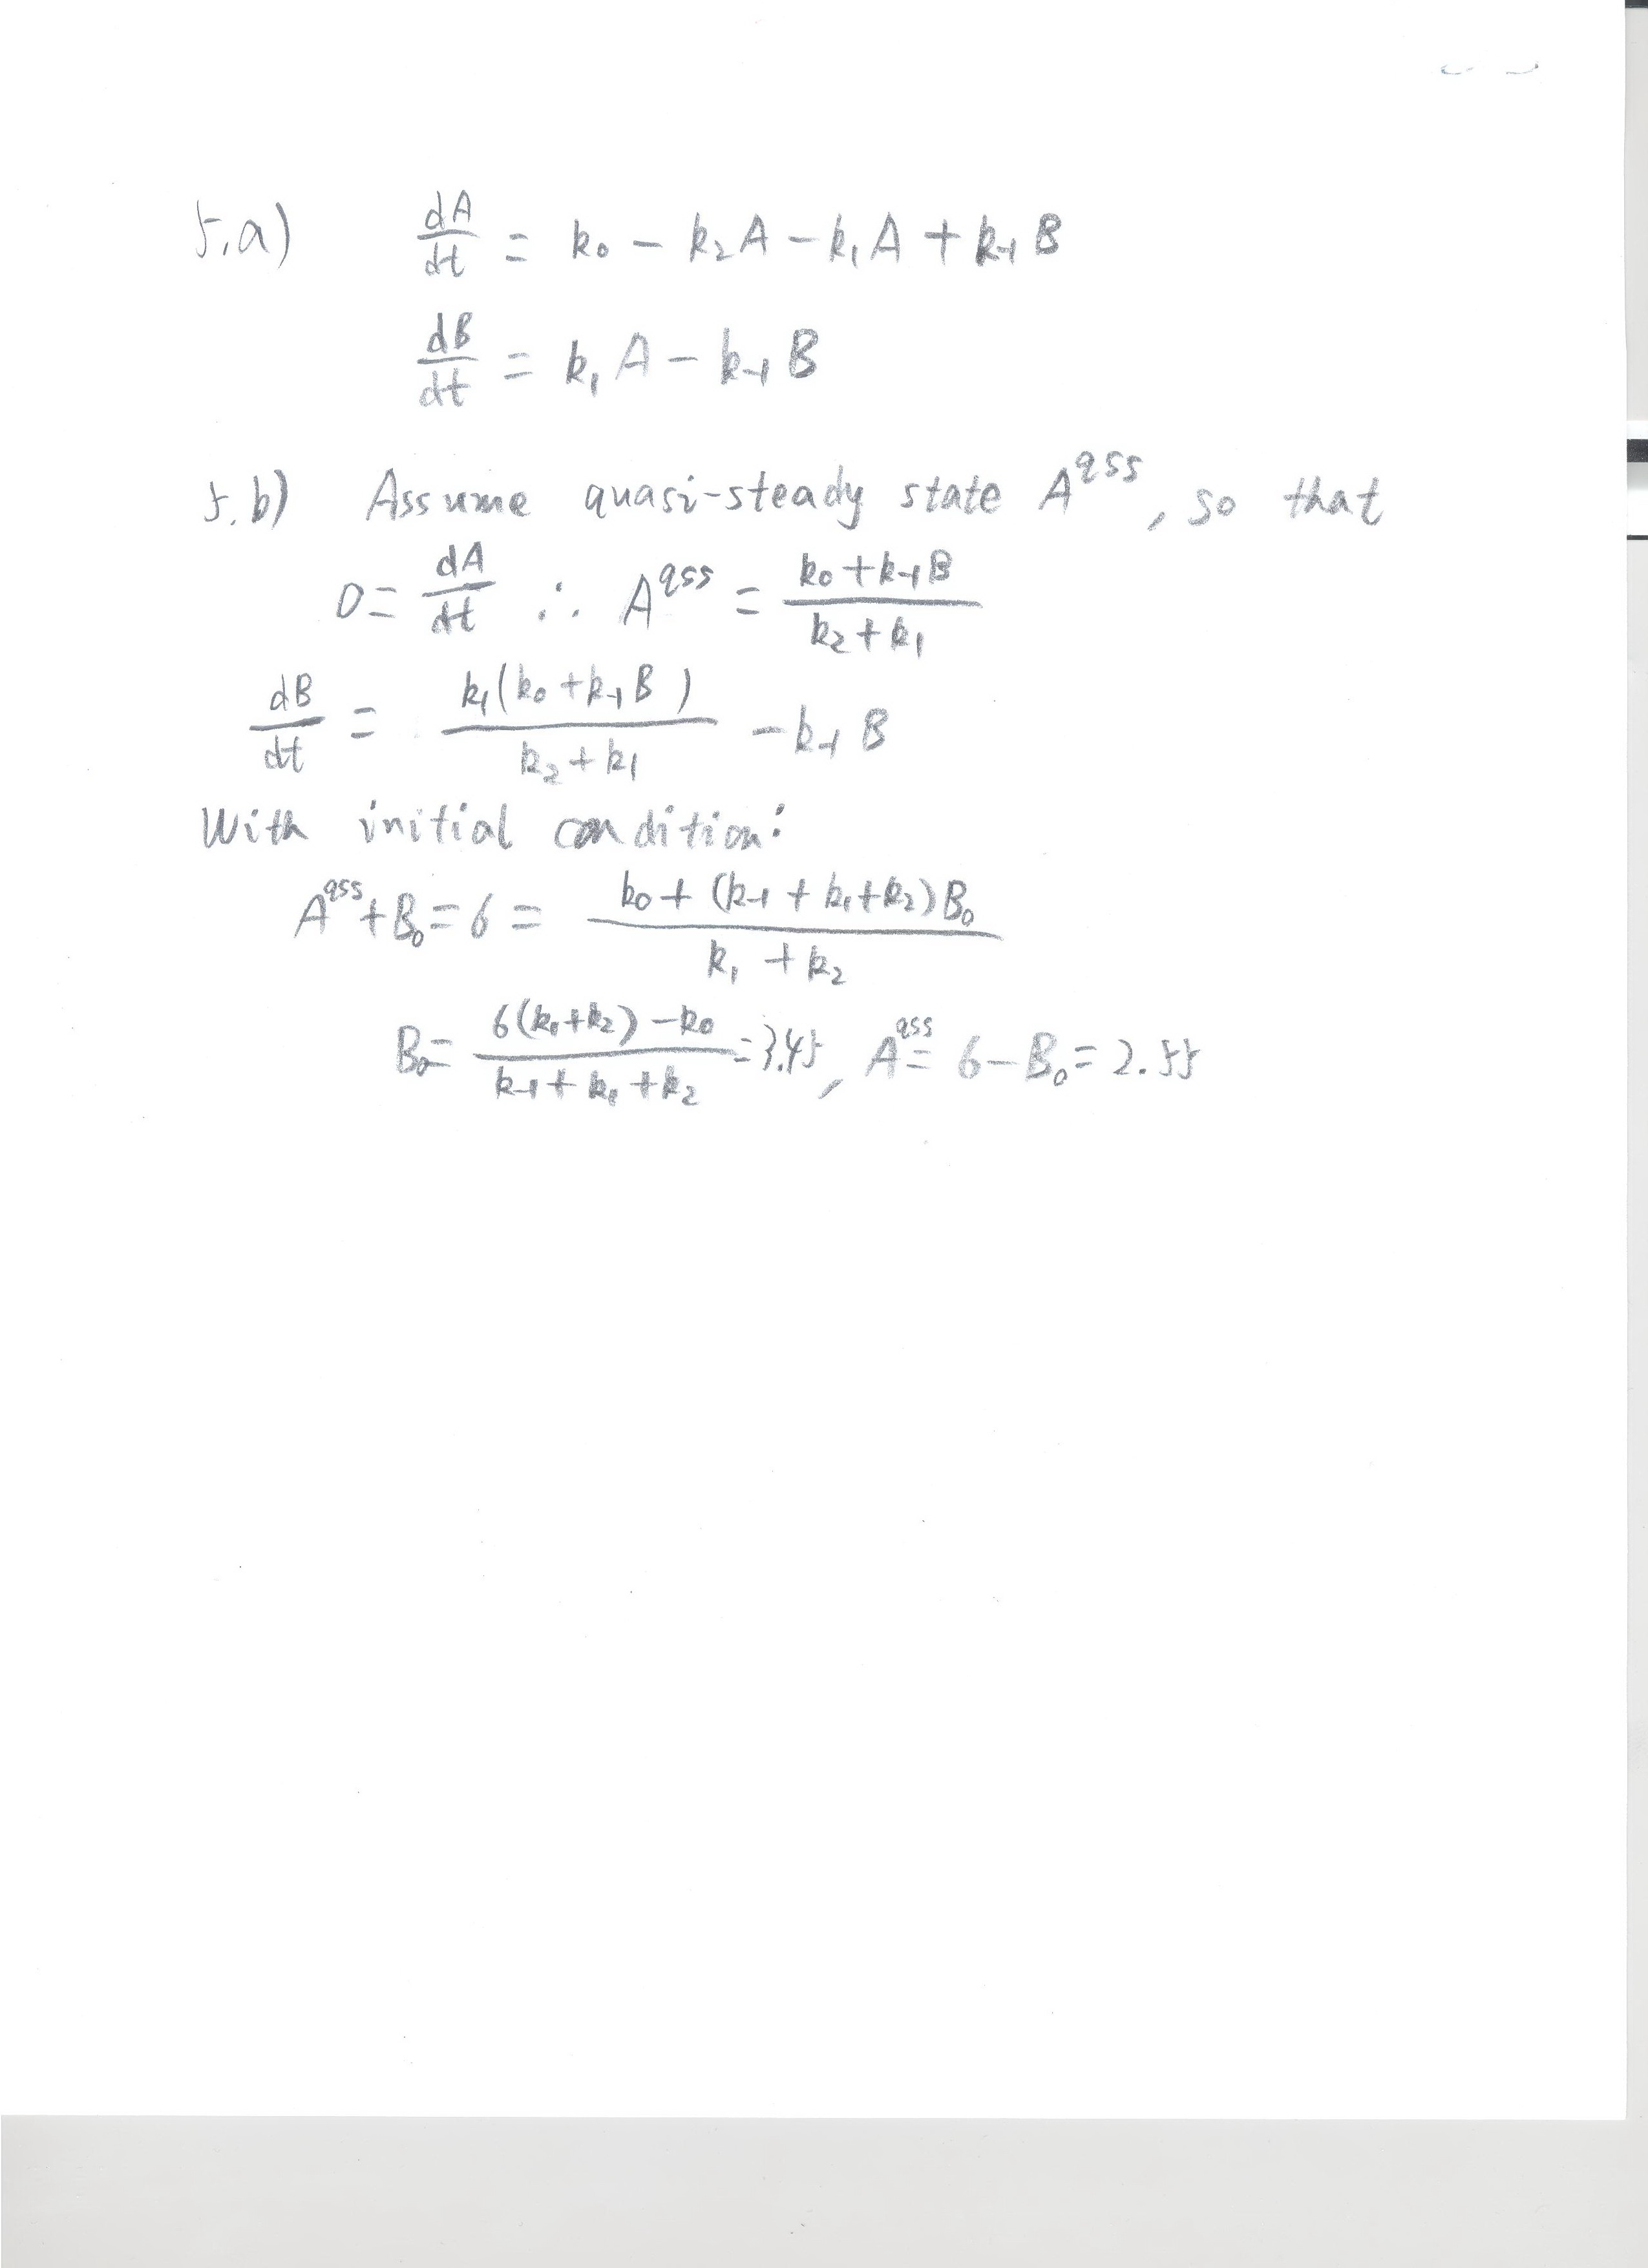 5.a) dA/dt = k₀ - k₂A - k₁A + k₋₁B
dB/dt = k₁A - k₋₁B
5.b) Assume quasi-steady state A^qss, so that
0 = dA/dt ∴ A^qss = (k₀+k₋₁B)/(k₂+k₁)
dB/dt = k₁(k₀+k₋₁B)/(k₂+k₁) - k₋₁B
With initial condition:
A^qss+B₀=6= (k₀+(k₋₁+k₁+k₂)B₀)/(k₁+k₂)
B₀= (6(k₁+k₂)-k₀)/(k₋₁+k₁+k₂) =3.45, A^qss= 6-B₀=2.55